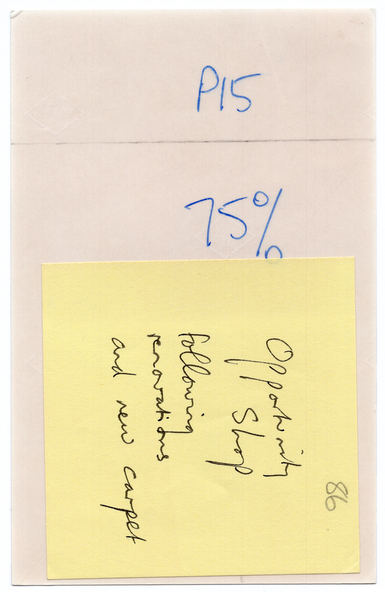 P15
75%
Opportunity
Shop
following
renovations
and new carpet
86